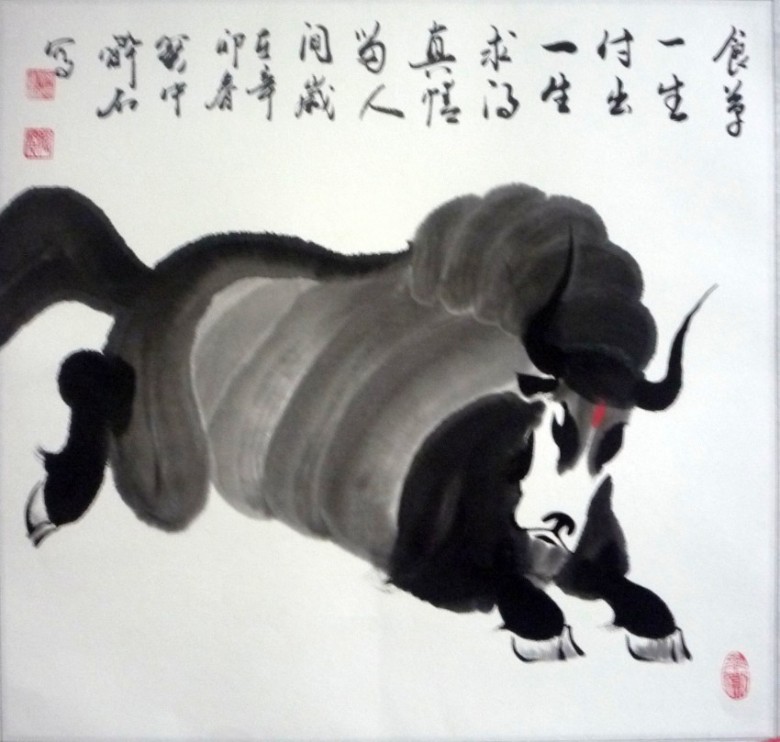 食草
一生
付出
一生
求得
真情
留人
间歲
在辛
卯春
於中
醉石
写